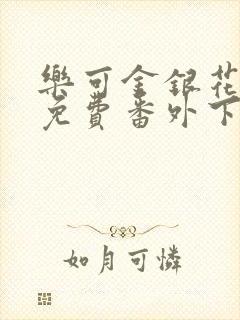 樂可金銀花
免費番外下
如月可憐